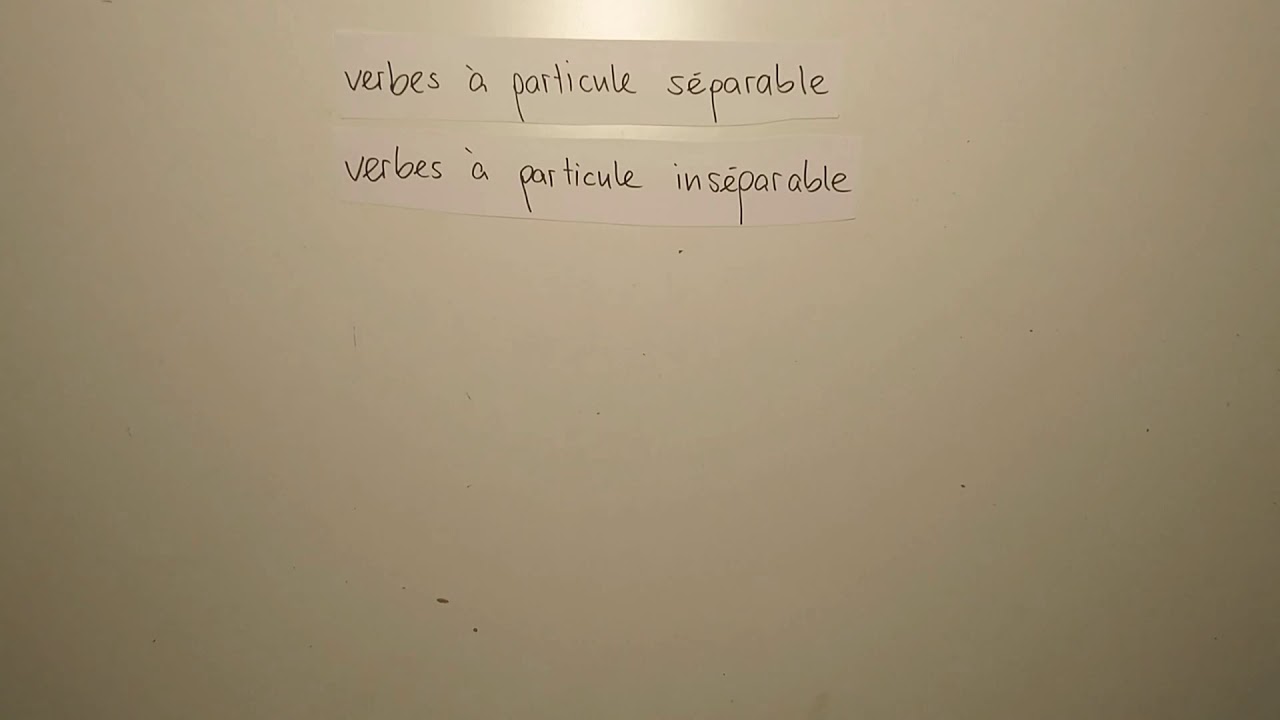 verbes à particule séparable
verbes à particule inséparable